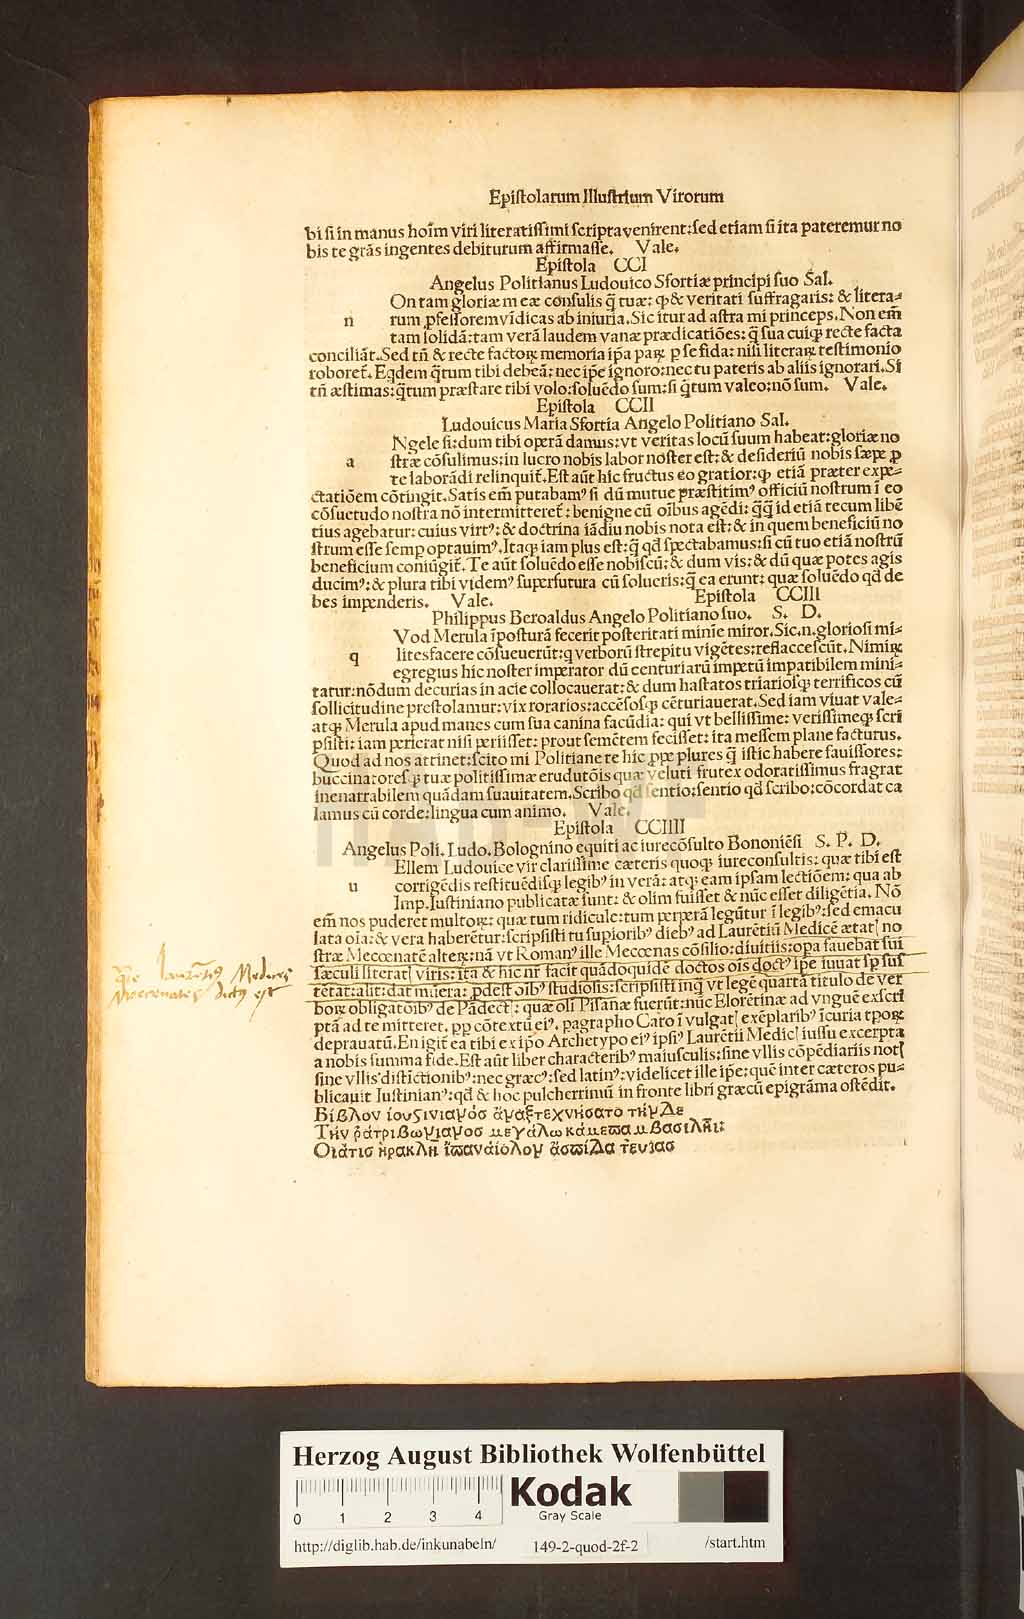 Epistolarum Illustrium Virorum
bi si in manus hoīm viri literatissimi scripta venirent: sed etiam si ita pateremur no
bis te grās ingentes debiturum affirmasse. Vale.
Epistola CCI
Angelus Politianus Ludouico Sfortiæ principi suo Sal.
On tam gloriæ meæ consulis q̄ tuæ: ꝙ & veritati suffragaris: & litera=
n rum ꝓfessorem vīdicas ab iniuria. Sic itur ad astra mi princeps. Non em̄
tam solidā: tam verā laudem vanæ prædicatiōes: q̄ sua cuiqꝫ recte facta
conciliāt. Sed tn̄ & recte factoꝝ memoria īpa paꝝ p se fida: nisi literaꝝ testimonio
roboret̄. Eqdem q̄tum tibi debeā: nec ipe ignoro: nec tu pateris ab aliis ignorari. Si
tn̄ æstimas: q̄tum præstare tibi volo: soluēdo sum: si q̄tum valeo: nō sum. Vale.
Epistola CCII
Ludouicus Maria Sfortia Angelo Politiano Sal.
Ngele si: dum tibi operā damus: vt veritas locū suum habeat: gloriæ no
a stræ cōsulimus: in lucro nobis labor noster est: & desideriū nobis sæpe ꝓ
te laborādi relinquit̄. Est aūt hic fructus eo gratior: ꝙ etiā præter expe=
ctatiōem cōtingit. Satis em̄ putabamꝰ si dū mutue præstitimꝰ officiū nostrum ī eo
cōsuetudo nostra nō intermitteret̄: benigne cū oībus agēdi: q̄q̄ id etiā tecum libē
tius agebatur: cuius virtꝰ: & doctrina iādiu nobis nota est: & in quem beneficiū no
strum esse semp optauimꝰ. Itaqꝫ iam plus est: q̄ qd̄ spectabamus: si cū tuo etiā nostrū
beneficium coniūgit̄. Te aūt soluēdo esse nobiscū: & dum vis: & dū quæ potes agis
ducimꝰ: & plura tibi videmꝰ superfutura cū solueris: q̄ ea erunt: quæ soluēdo qd̄ de
bes impenderis. Vale. Epistola CCIII
Philippus Beroaldus Angelo Politiano suo. S. D.
Vod Merula īposturā fecerit posteritati minīe miror. Sic.n. gloriosi mi=
q lites facere cōsueuerūt: q verborū strepitu vigētes: re flaccescūt. Nimiꝝ
egregius hic noster imperator dū centuriarū impetū impatibilem mini=
tatur: nōdum decurias in acie collocauerat: & dum hastatos triariosqꝫ terrificos cū
sollicitudine prestolamur: vix rorarios: accēsosqꝫ cēturiauerat. Sed iam viuat vale=
atqꝫ Merula apud manes cum sua canina facūdia: qui vt bellissime: verissimeqꝫ scri
psisti: iam perierat nisi periisset: prout semētem fecisset: ita messem plane facturus.
Quod ad nos attinet: scito mi Politiane te hic ꝓpe plures q̄ istic habere fauissores:
buccinatoresqꝫ tuæ politissimæ eruditōis quæ veluti frutex odoratissimus fragrat
inenarrabilem quādam suauitatem. Scribo qd̄ sentio: sentio qd̄ scribo: cōcordat ca
lamus cū corde: lingua cum animo. Vale.
Epistola CCIIII
Angelus Poli. Ludo. Bolognino equiti ac iurecōsulto Bononiēsi S. P. D.
Ellem Ludouice vir clarissime cæteris quoqꝫ iureconsultis: quæ tibi est
u corrigēdis restituēdisqꝫ legibꝰ in verā: atqꝫ eam ipsam lectiōem: qua ab
Imp. Iustiniano publicatæ sunt: & olim fuisset & nūc esset diligētia. Nō
em̄ nos puderet multoꝝ: quæ tum ridicule: tum perperā legūtur ī legibꝰ: sed emacu
lata oīa: & vera haberētur: scripsisti tu supioribꝰ diebꝰ ad Laurētiū Medicē ætatꝭ no
stræ Mecœnatē alteꝝ: nā vt Romanꝰ ille Mecœnas cōsilio: diuitiis: opa fauebat sui
sæculi literatꝭ viris: ita & hic nr̄ facit quādoquidē doctos oīs doctꝰ ipe iuuat sp sus
tētat: alit: dat mūera: ꝓdest oībꝰ studiosis: scripsisti inq̄ vt legē quartā titulo de ver
boꝝ obligatōibꝰ de Pādectꝭ: quæ olī Pisanæ fuerūt: nūc Florētinæ ad vnguē exscri
ptā ad te mitteret. ꝓp cōtextū eiꝰ, pagrapho Cato ī vulgatꝭ exēplaribꝰ īcuria tpoꝝ
deprauatū. En igit̄ ea tibi ex ipo Archetypo eiꝰ ipsiꝰ Laurētii Medicꝭ iussu excerpta
a nobis summa fide. Est aūt liber characteribꝰ maiusculis: sine vllis cōpēdiariis notꝭ
sine vllis distīctionibꝰ: nec græcꝰ: sed latinꝰ: videlicet ille ipe: quē inter cæteros pu=
blicauit Iustinianꝰ: qd̄ & hoc pulcherrimū in fronte libri græcū epigrāma ostēdit.
Βίβλον ἰουςινιανόσ ἄναξ τεχνήσατο τήνδε
Τὴν ῥα τριβωνιανοσ μεγάλω κάμε παμβασιλῆϊ:
Οιά τισ ἡρακλῆι παναίολον ἀσπίδα τεύξασ
Laurētiꝰ Medices
Mœcenates dictꝰ est
Herzog August Bibliothek Wolfenbüttel
0 1 2 3 4
Kodak
Gray Scale
http://diglib.hab.de/inkunabeln/ 149-2-quod-2f-2 /start.htm